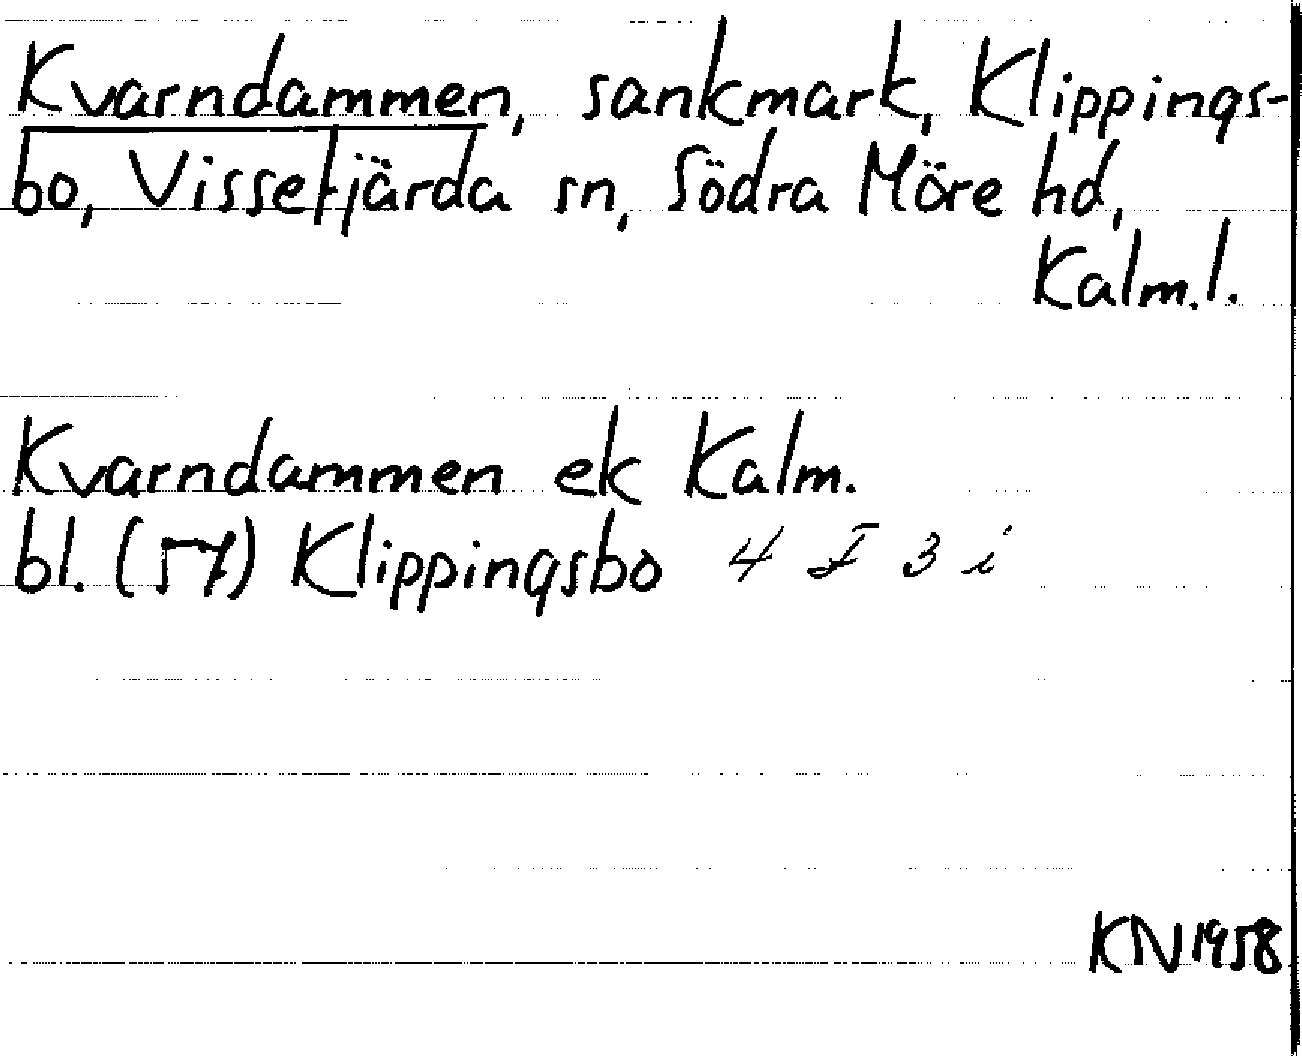 Kvarndammen, sankmark, Klippings-
bo, Vissefjärda sn, Södra Möre hd,
Kalm.l.
Kvarndammen ek Kalm.
bl. (57) Klippingsbo 4 F 3 i
KN 1958